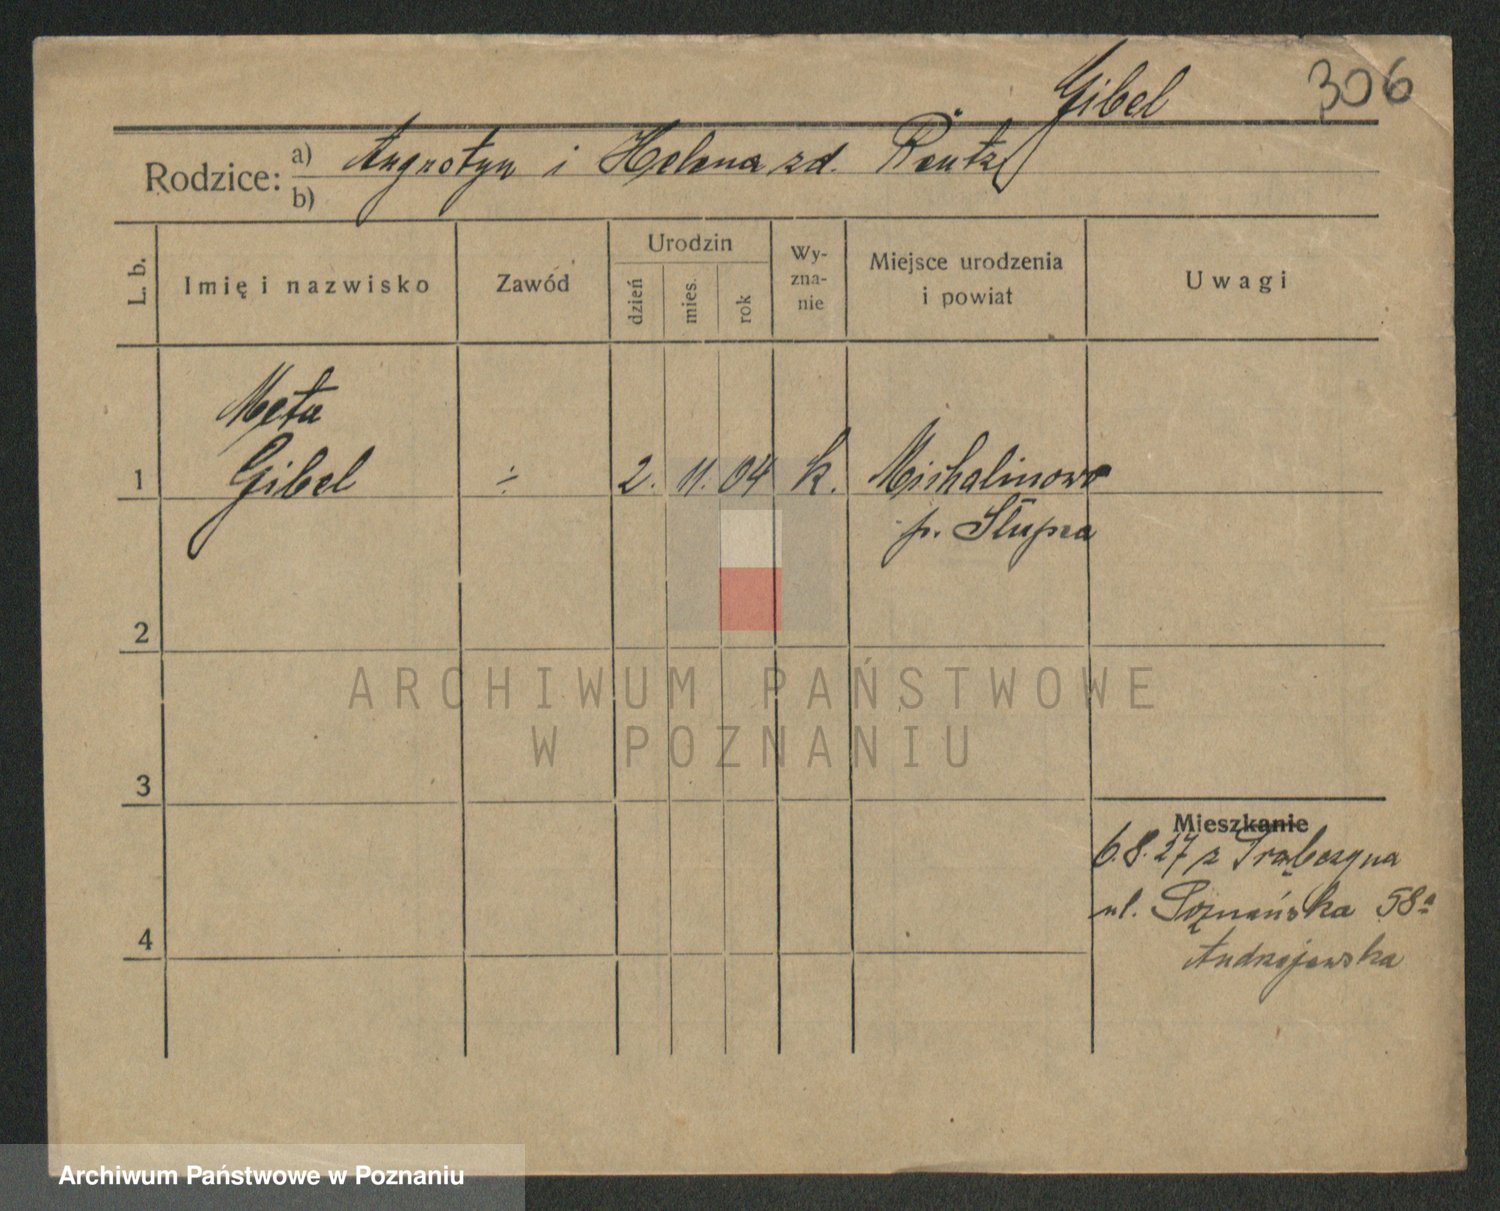 Gibel
306
Rodzice: a) Augustyn i Helena zd. Rentz
b)
L. b.
Imię i nazwisko
Zawód
Urodzin
dzień
mies.
rok
Wy-
zna-
nie
Miejsce urodzenia
i powiat
Uwagi
Meta
1 Gibel ÷ 2. 11. 04 k. Michalinowo
p. Słupca
2
ARCHIWUM PAŃSTWOWE
W POZNANIU
3
Mieszkanie
6.8.27 z Trąbczyna
ul. Poznańska 58a
4
Andrzejewska
Archiwum Państwowe w Poznaniu